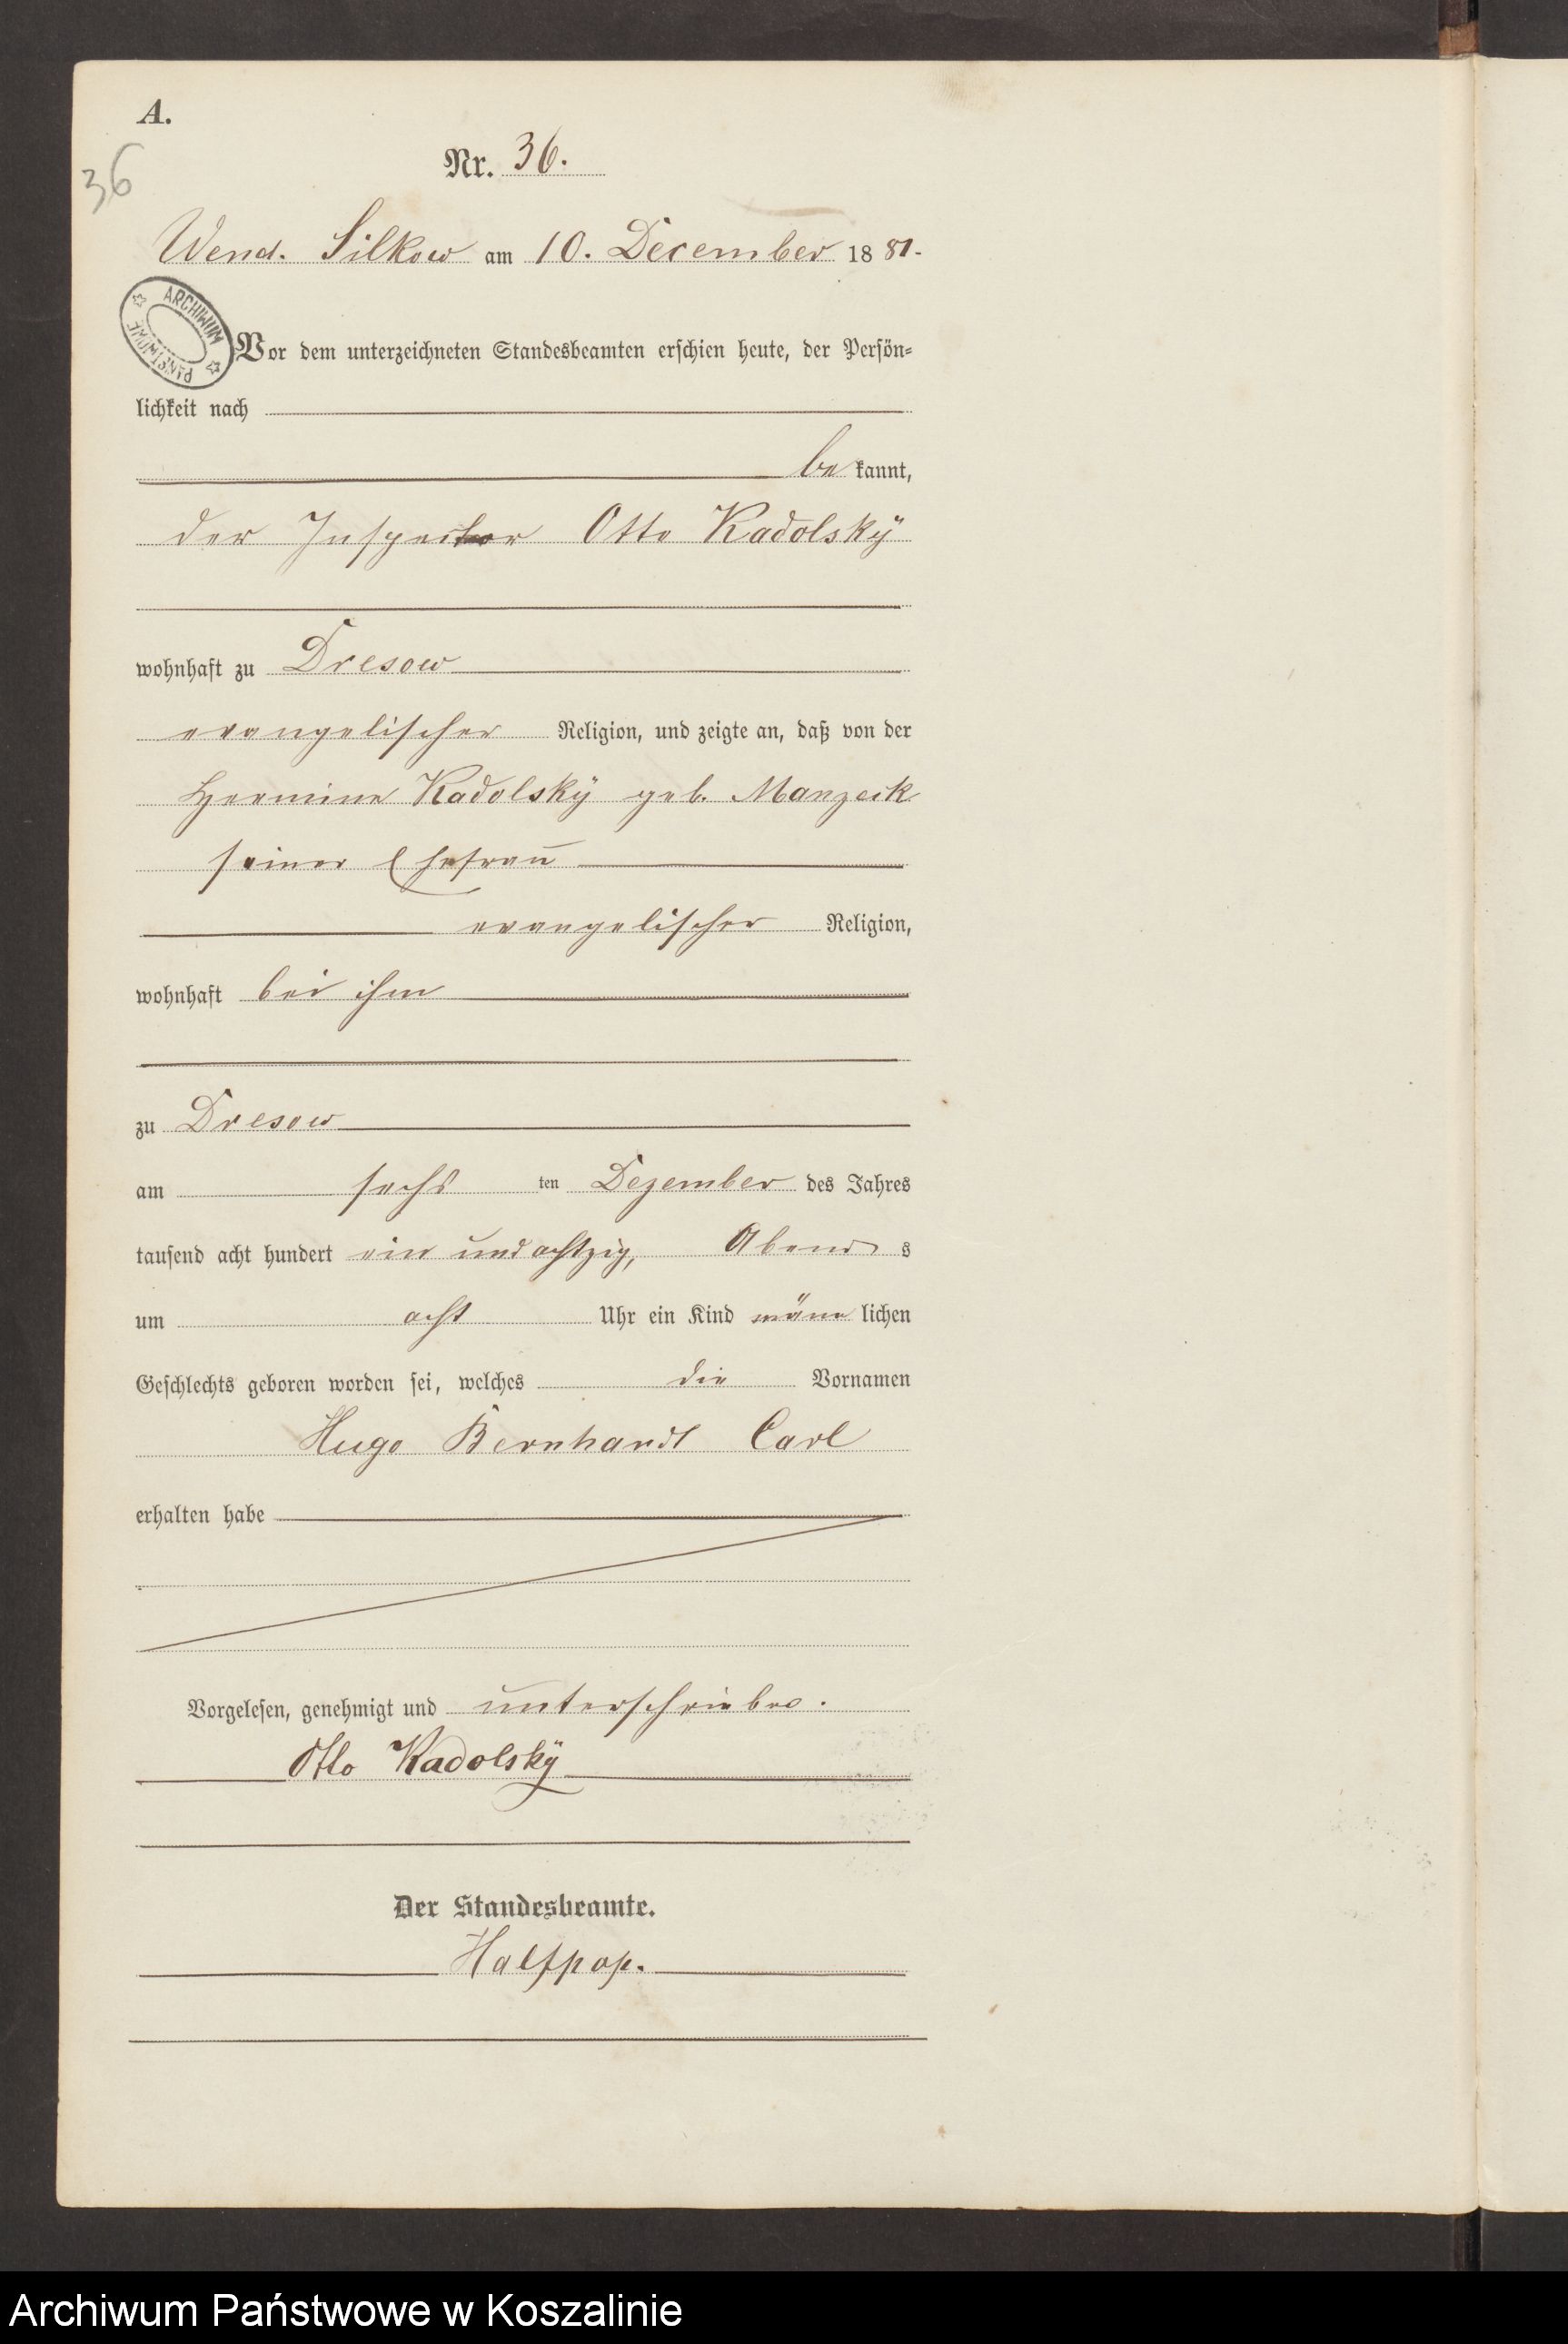 A.
36
Nr. 36.
Wend. Silkow am 10. December 1881.
ARCHIWUM PAŃSTWOWE
Vor dem unterzeichneten Standesbeamten erschien heute, der Persön=
lichkeit nach
bekannt,
der Inspector Otto Kadolskÿ
wohnhaft zu Dresow
evangelischer Religion, und zeigte an, daß von der
Hermine Kadolskÿ geb. Manzeck
seiner Ehefrau
evangelischer Religion,
wohnhaft bei ihm
zu Dresow
am sechsten Dezember des Jahres
tausend acht hundert ein und achtzig, Abends
um acht Uhr ein Kind männlichen
Geschlechts geboren worden sei, welches die Vornamen
Hugo Bernhardt Carl
erhalten habe
Vorgelesen, genehmigt und unterschrieben.
Otto Kadolskÿ
Der Standesbeamte.
Halfpap.
Archiwum Państwowe w Koszalinie